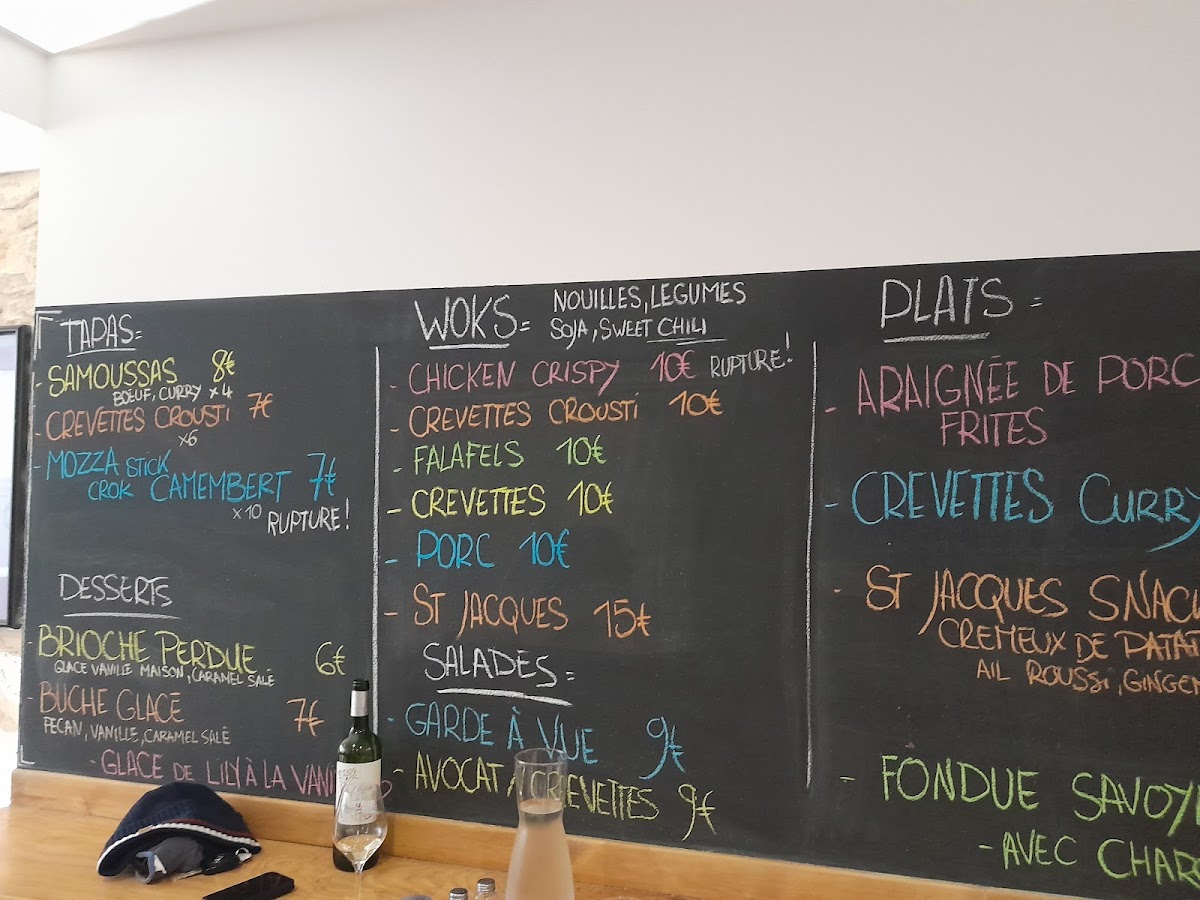 TAPAS=
- SAMOUSSAS 8€
BŒUF, CURRY x4
- CREVETTES CROUSTI 7€
x6
- MOZZA STICK
CROK CAMEMBERT 7€
x10 RUPTURE!
DESSERTS
- BRIOCHE PERDUE 6€
GLACE VANILLE MAISON, CARAMEL SALÉ
- BUCHE GLACE 7€
PECAN, VANILLE, CARAMEL SALÉ
- GLACE DE LILY À LA VANI
WOKS= NOUILLES, LEGUMES
SOJA, SWEET CHILI
- CHICKEN CRISPY 10€ RUPTURE!
- CREVETTES CROUSTI 10€
- FALAFELS 10€
- CREVETTES 10€
- PORC 10€
- ST JACQUES 15€
SALADES=
- GARDE À VUE 9€
- AVOCAT CREVETTES 9€
PLATS =
- ARAIGNÉE DE PORC
FRITES
- CREVETTES CURRY
- ST JACQUES SNAC
CREMEUX DE PATA
AIL ROUSSI, GINGEM
- FÔNDUE SAVOY
- AVEC CHARC